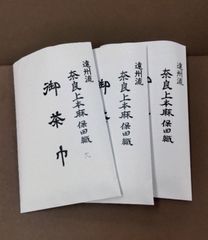 遠州流
奈良上本麻保田織
御茶巾
遠州流
奈良上本麻保田織
遠州流
奈良上本麻保田織